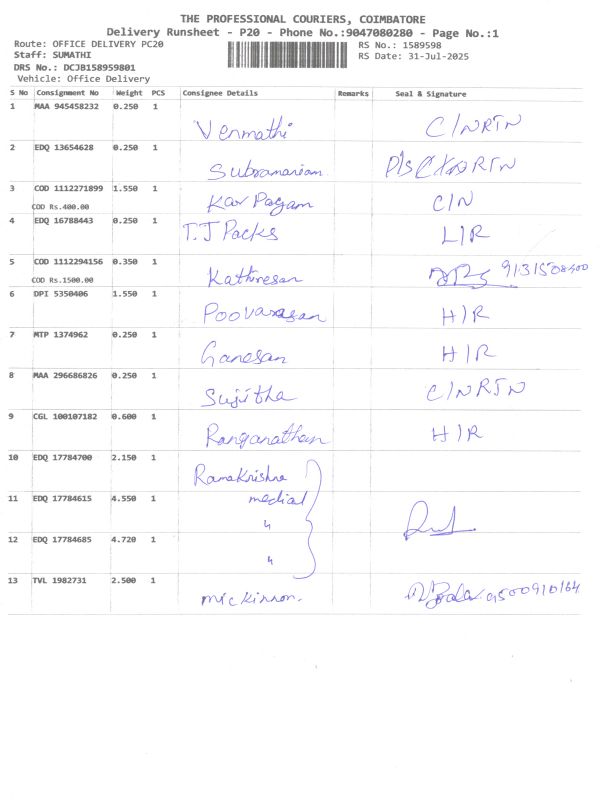 THE PROFESSIONAL COURIERS, COIMBATORE
Delivery Runsheet - P20 - Phone No.:9047080280 - Page No.:1
Route: OFFICE DELIVERY PC20
RS No.: 1589598
Staff: SUMATHI
RS Date: 31-Jul-2025
DRS No.: DCJB158959801
Vehicle: Office Delivery
S No Consignment No Weight PCS Consignee Details Remarks Seal & Signature
1 MAA 945458232 0.250 1
Venmathi C/NRTN
2 EDQ 13654628 0.250 1
Subramaniam
3 COD 1112271899 1.550 1
COD Rs.400.00 Kar Pagam C/N
4 EDQ 16788443 0.250 1
T.J Packs L/R
5 COD 1112294156 0.350 1
COD Rs.1500.00 Kathiresan
6 DPI 5350406 1.550 1
Poovarasan H/R
7 MTP 1374962 0.250 1
Ganesan H/R
8 MAA 296686826 0.250 1
Sujitha C/NRTN
9 CGL 100107182 0.600 1
Ranganathan H/R
10 EDQ 17784700 2.150 1
Ramakrishna
medial
11 EDQ 17784615 4.550 1
"
12 EDQ 17784685 4.720 1
"
13 TVL 1982731 2.500 1
mickinnon. 9500910164